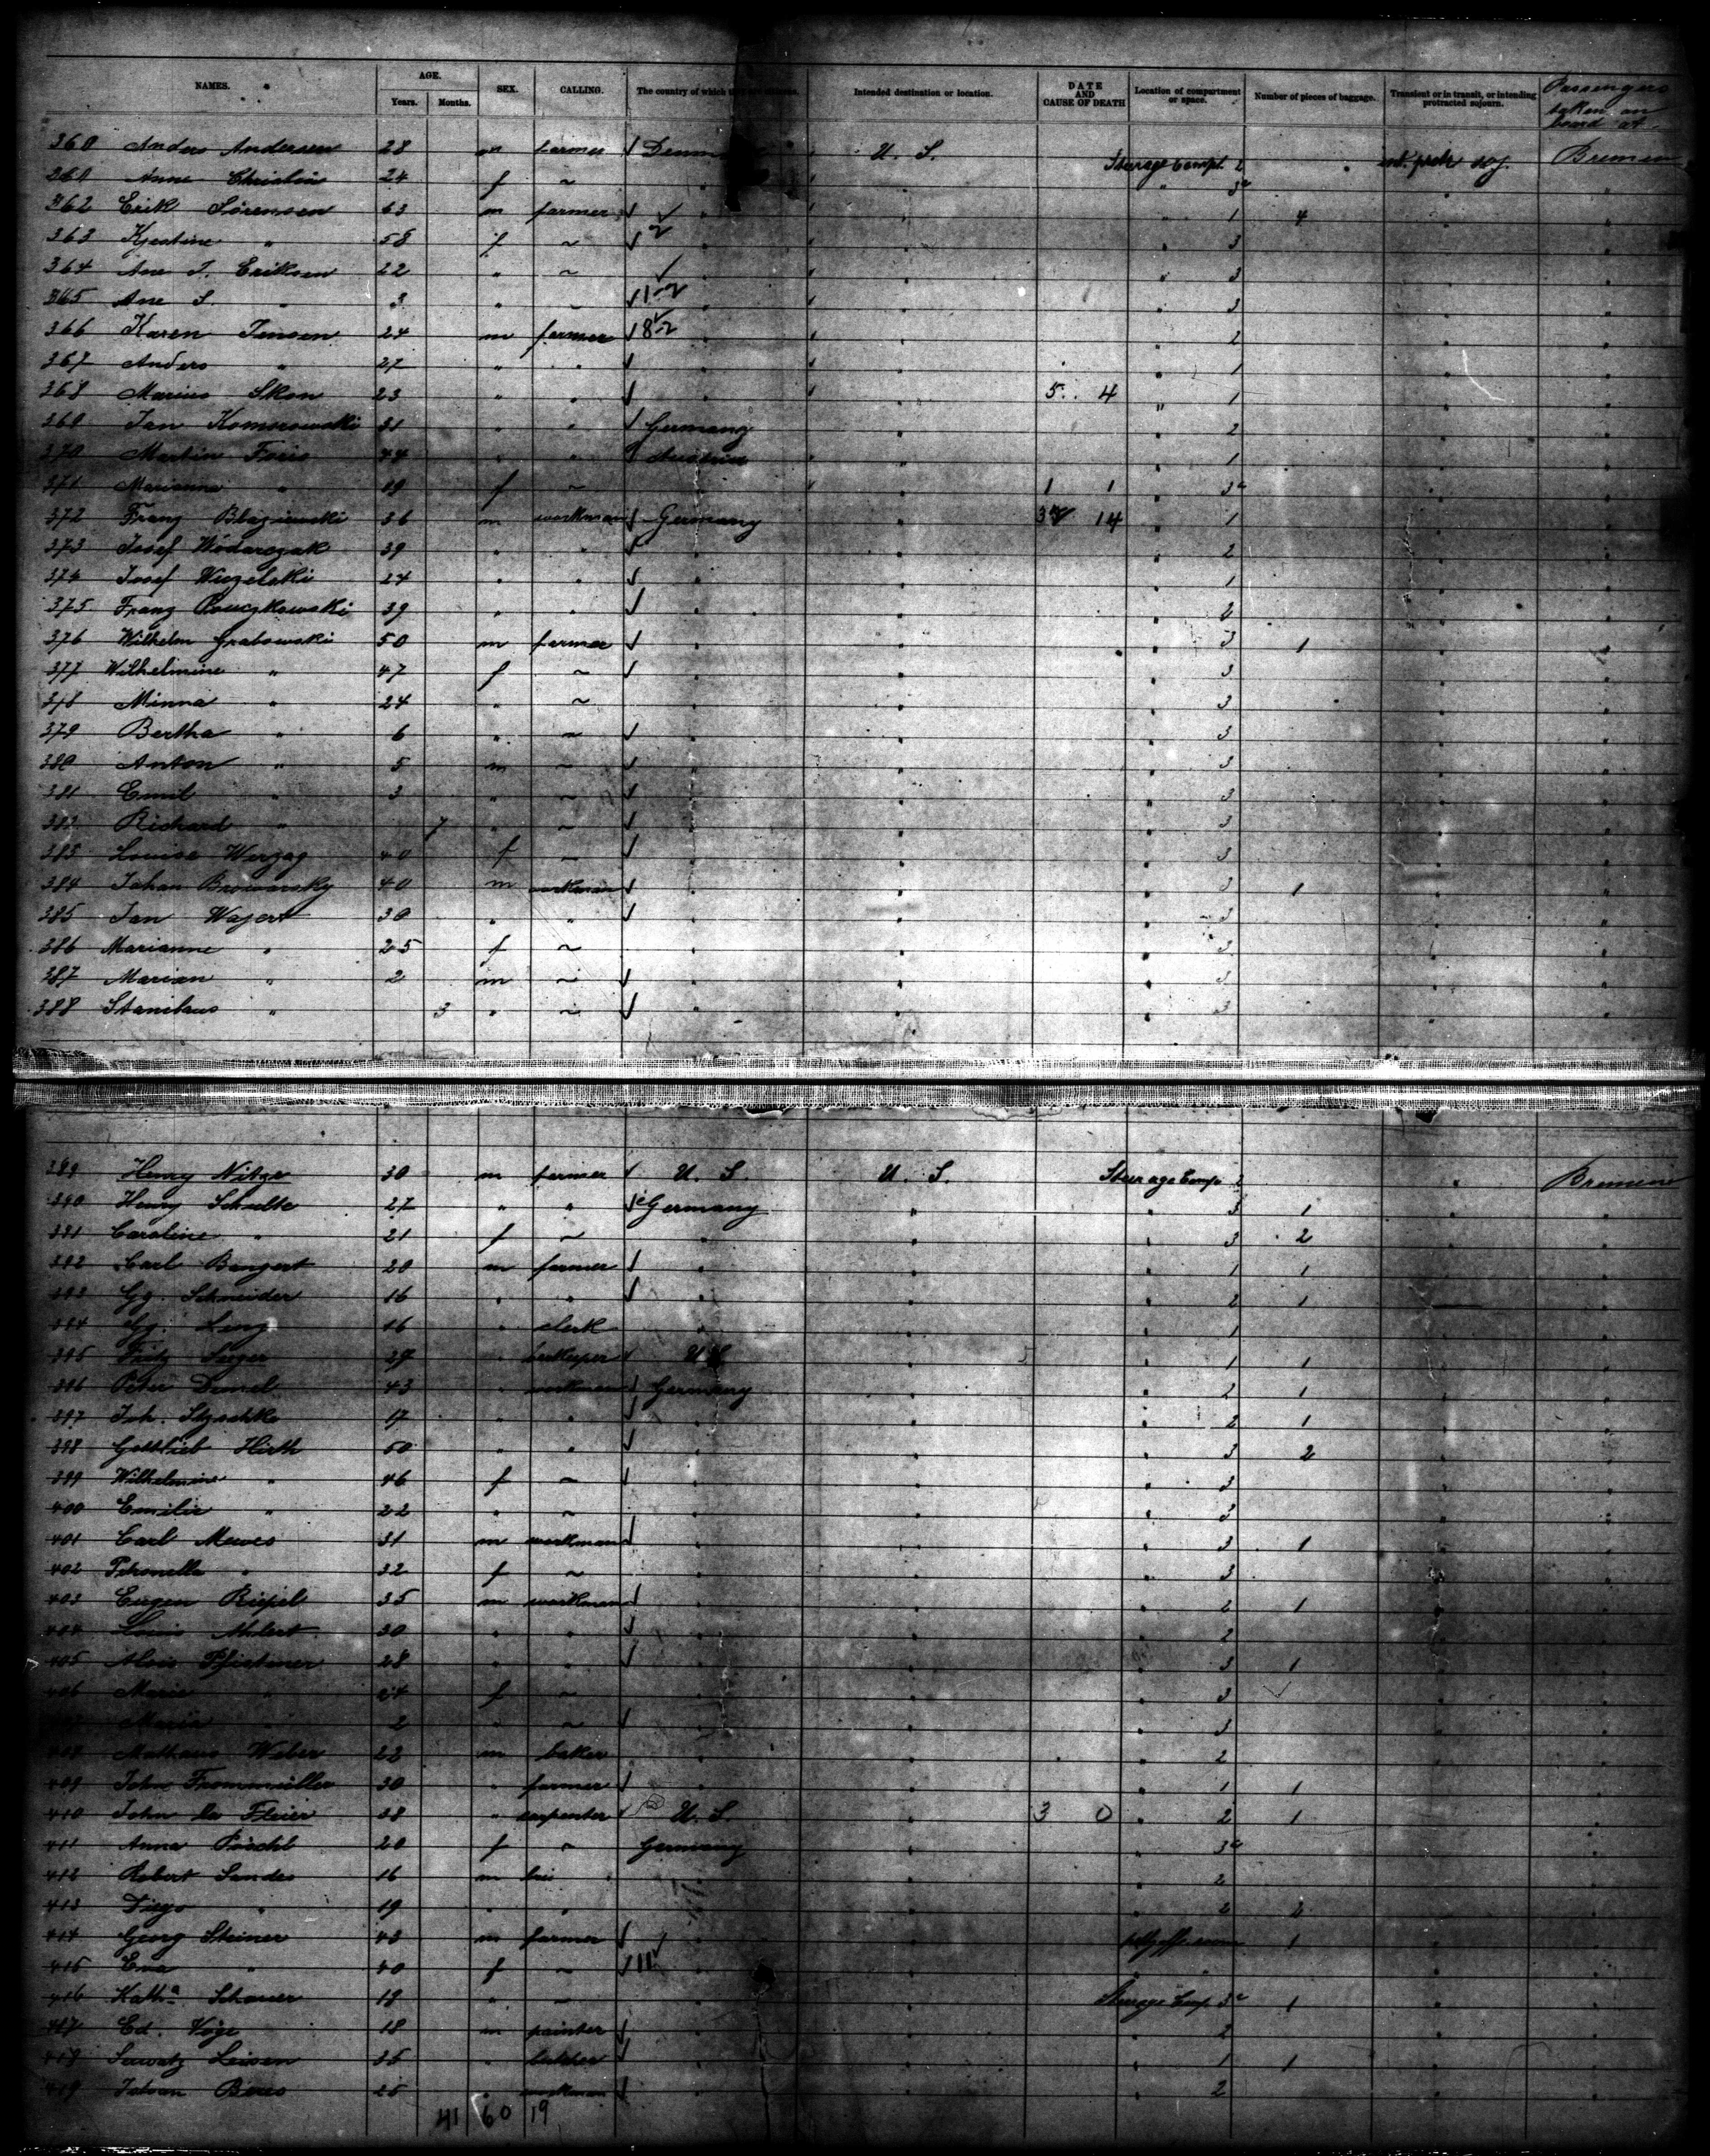 Passengers
taken on
board at
NAMES. AGE. Years. Months. SEX. CALLING. The country of which they are citizens. Intended destination or location. DATE AND CAUSE OF DEATH Location of compartment or space. Number of pieces of baggage. Transient or in transit, or intending protracted sojourn.
360 Anders Andersen 28 m farmer √ Denm U. S. Steerage Compt. 2 Bremen
361 Anne Christin 24 f ~ " " " 3a " "
362 Erik Sörensen 63 m farmer √ " " " 1 4 " "
363 Kjestine " 58 f ~ √ 2 " " " 3 " "
364 Ane J. Eriksen 22 " ~ " " " 3 " "
365 Ane S. " 3 " ~ √ " " " 3 " "
366 Karen Jensen 24 m farmer √ " " " 2 " "
367 Anders " 27 " " √ " " " 1 " "
368 Marius Skou 23 " " √ " " 5 4 " 1 " "
369 Jan Komorowski 31 " " √ Germany " " 2 " "
370 Martin Foris 44 " " Austria " " 1 " "
371 Marianne " 19 f ~ " " 1 1 " 3a " "
372 Franz Blaziewski 36 m workman √ Germany " 14 " 1 " "
373 Josef Wodarczak 39 " " √ " " " 2 " "
374 Josef 24 " " √ " " " 1 " "
375 Franz 39 " " √ " " " 2 " "
376 Wilhelm Grabowski 50 m farmer √ " " " 3 1 " "
377 Wilhelmine " 47 f ~ √ " " " 3 " "
378 Minna " 24 " ~ " " " 3 " "
379 Bertha " 6 " ~ √ " " " 3 " "
380 Anton " 5 m ~ √ " " " 3 " "
381 Emil " 3 " ~ √ " " " 3 " "
382 Richard " 7 " ~ √ " " " 3 " "
383 Louise Werzag 40 f ~ √ " " " 3 " "
384 Johan Browarsky 40 m workman √ " " " 3 1 " "
385 Jan Wajert 30 " " √ " " " 3 " "
386 Marianne " 25 f ~ " " " 3 " "
387 Marian " 2 m ~ √ " " " 3 " "
388 Stanilaus " 3 " ~ √ " " " 3 " "
389 Henry Nitze 30 m farmer √ U. S. U. S. Steerage Comp 2 " Bremen
390 Henry Schulte 27 " " √ Germany " " 3 1 " "
391 Caroline " 21 f ~ " " " 3 2 " "
392 Carl Bangert 20 m farmer √ " " " 1 1 " "
393 Gg. Schneider 16 " " √ " " " 2 1 " "
394 Gg. Lenz 16 " clerk " " " 1 " "
395 Fritz Seeger 27 " √ U.S. " " 1 1 " "
396 Peter Demel 43 " workman √ Germany " " 2 1 " "
397 Joh. 17 " " √ " " " 2 1 " "
398 Gottlieb Hirth 50 " " √ " " " 3 2 " "
399 Wilhelmine " 46 f ~ √ " " " 3 " "
400 Emilie " 22 " ~ " " " 3 " "
401 Carl Mewes 31 m workman √ " " " 3 1 " "
402 Petronella " 32 f ~ " " " 3 " "
403 Eugen Riepel 35 m workman √ " " " 2 1 " "
404 Louis 30 " " √ " " " 2 " "
405 Alois Pfistner 28 " " √ " " " 3 1 " "
406 Marie " 24 f ~ " " " 3 " "
407 Maria " 2 " ~ √ " " " 3 " "
408 Mathaus Weber 22 m baker " " " 2 " "
409 John Frommüller 30 " farmer √ " " " 1 1 " "
410 John La Fleier 38 " carpenter √ U. S. " 3 0 " 2 1 " "
411 Anna Pöschl 20 f ~ Germany " " 3a " "
412 Robert Sandes 16 m " " " 2 " "
413 Diego " 19 " " " " " 2 2 " "
414 Georg Steiner 43 m farmer √ " " 1 " "
415 Eva " 40 f ~ √ 11 " " " "
416 Katha Schauer 19 " ~ " " Steerage Comp 3a 1 " "
417 Ed. Vöge 18 m painter √ " " " 2 " "
418 Leisen 35 " butcher √ " " " 1 1 " "
419 Istvan Beres 25 " workman √ " " " 2 " "
41 60 19